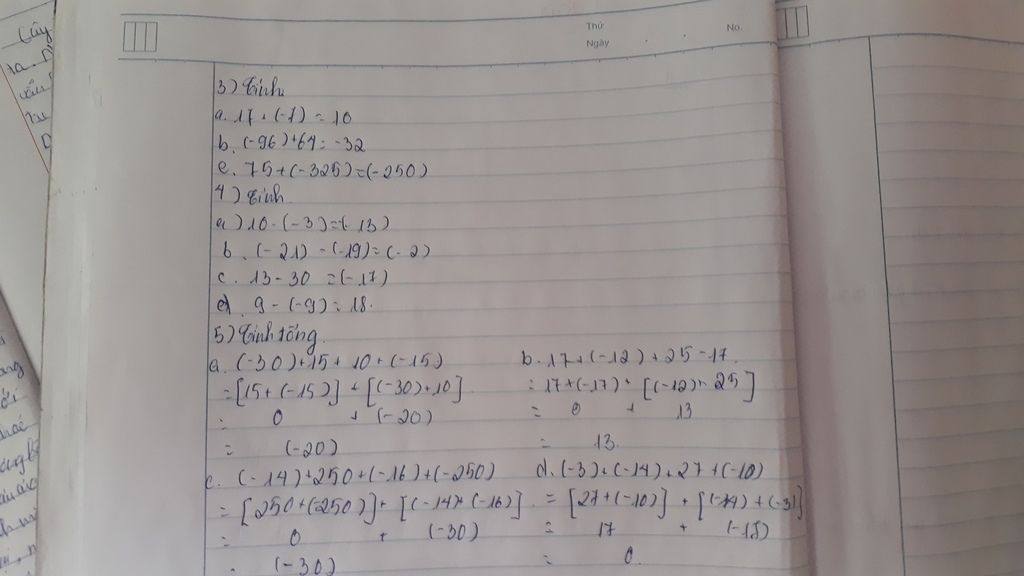 Thứ
No.
Ngày
3) Tính
a. 17 + (-7) = 10
b. (-96) + 64 = -32
c. 75 + (-325) = (-250)
4) Tính
a) 10 - (-3) = (13)
b. (-21) - (-19) = (-2)
c. 13 - 30 = (-17)
d. 9 - (-9) = 18.
5) Tính tổng.
a. (-30) + 15 + 10 + (-15)
= [15 + (-15)] + [(-30) + 10]
= 0 + (-20)
= (-20)
b. 17 + (-12) + 25 - 17.
= 17 + (-17) + [(-12) + 25]
= 0 + 13
= 13.
c. (-14) + 250 + (-16) + (-250)
= [250 + (250)] + [(-14) + (-16)]
= 0 + (-30)
= (-30)
d. (-3) + (-14) + 27 + (-10)
= [27 + (-10)] + [(-14) + (-3)]
= 17 + (-17)
= 0.